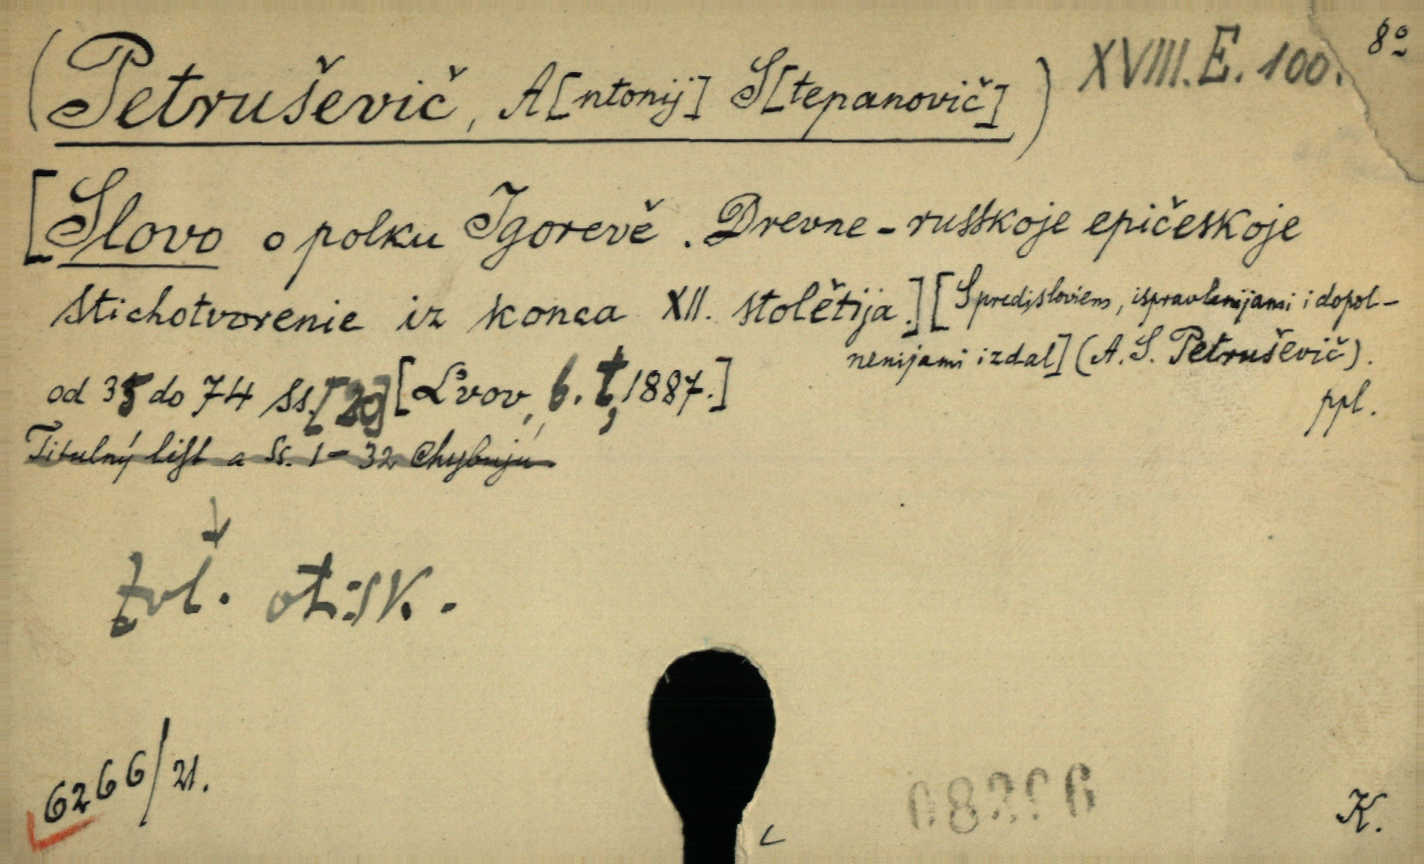 (Petruševič, A[ntonij] S[tepanovič]) XVIII.E.100. 8º
[Slovo o polku Igorevě. Drevne-russkoje epičeskoje
stichotvorenie iz konca XII. stolětija.] [S predisloviem, ispravlenijami i dopol-
nenijami izdal] (A. S. Petruševič).
od 35 do 74 ss. [29] [Ľvov, b. t., 1887.] ppl.
Titulný list a ss. 1-32 chybujú
zvl. otisk.
6266/21.
K.